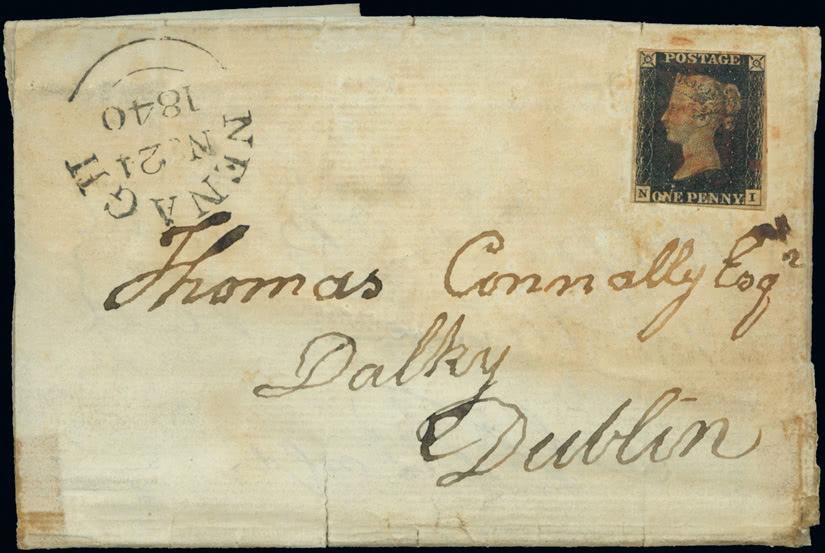 POSTAGE
N ONE PENNY I
NENAGH
No 21
1840
Thomas Connally Esqr
Dalky
Dublin